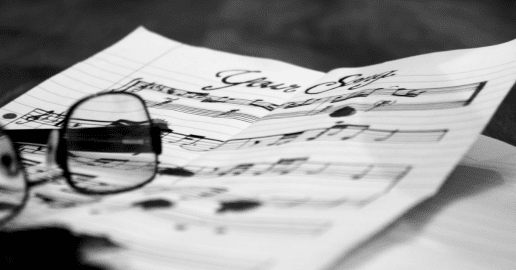 Your Song